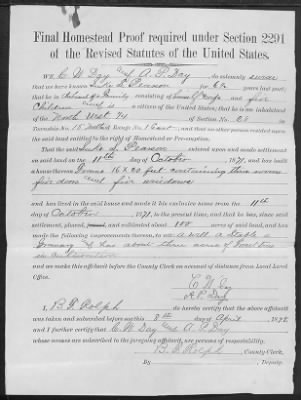 Final Homestead Proof required under Section 2291
of the Revised Statutes of the United States.
We, C W Day and A P Day do solemnly swear
that we have known Luke S Pearson for 6½ years last past;
that he is head of a family consisting of wife and five
Children and is a citizen of the United States; that he is an inhabitant
of the North West ¼ of Section No.
Township No. 15 North of Range 1 East, and that no other person resided upon
the said land entitled to the right of Homestead or Pre-emption.
That the said Luke S Pearson entered upon and made settlement
on said land on the 11th day of October, 1871, and has
a house thereon 16 x 20 feet containing three rooms
five doors and five windows
and has lived in the said house and made it his exclusive home from the 11th
day of October, 1871, to the present time, and that he has, since said
settlement, plowed, and cultivated about 100 acres of said land, and has
made the following improvements thereon, to wit: a well a Stable a
Granary has about three acres of
in cultivation
we make this affidavit before the County Clerk on account of distance from Local Land
Office.
C W Day
A P Day
I, B F Rolph do hereby certify that the above affidavit
was taken and subscribed before me this 8th day of April 1878
and I further certify that C W Day and A P Day
whose names are subscribed to the foregoing affidavit, are persons of respectability.
B F Rolph, County Clerk,
By Deputy.